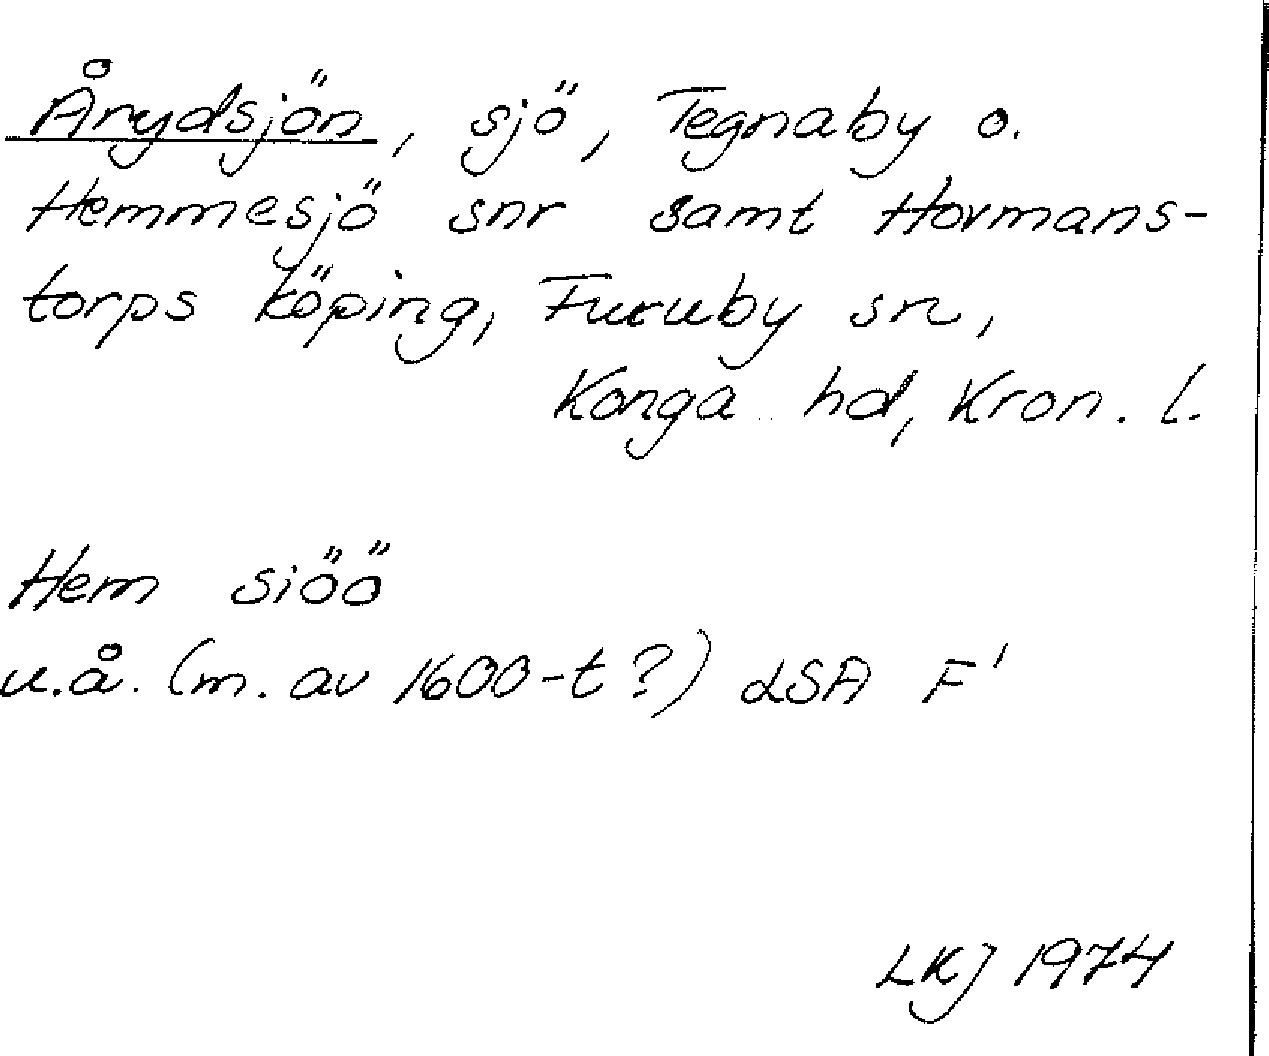 Årydsjön, sjö, Tegnaby o.
Hemmesjö snr samt Hovmans-
torps köping, Furuby sn,
Konga hd, Kron. l.
Hem siöö
u.å. (m. av 1600-t?) LSA F'
LKJ 1974